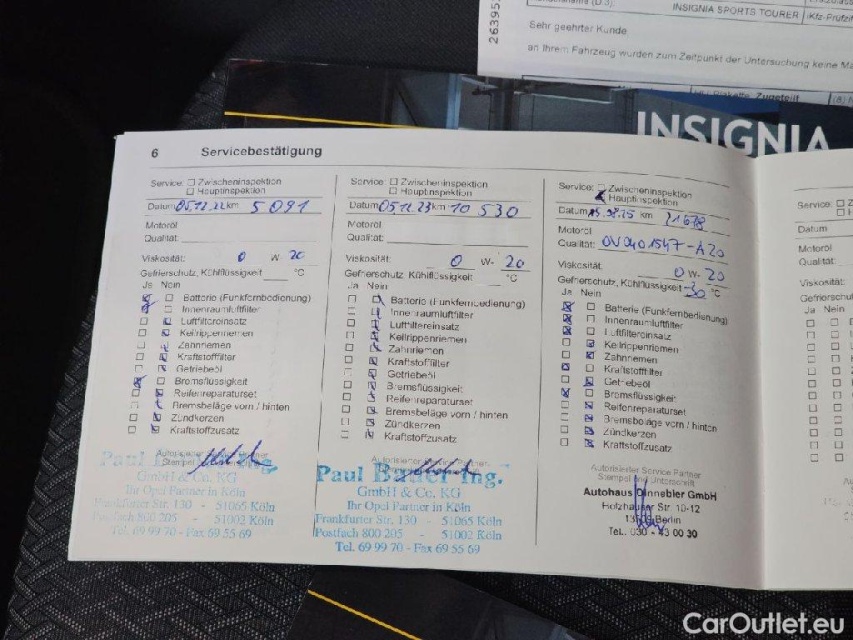 26395
INSIGNIA SPORTS TOURER
Sehr geehrter Kunde
an Ihrem Fahrzeug wurden zum Zeitpunkt der Untersuchung keine
INSIGNIA
6 Servicebestätigung
Service: Zwischeninspektion
Hauptinspektion
Datum 05.12.22 km 5 091
Motoröl
Qualität:
Viskosität: 0 W- 20
Gefrierschutz, Kühlflüssigkeit °C
Ja Nein
Batterie (Funkfernbedienung)
Innenraumluftfilter
Luftfiltereinsatz
Keilrippenriemen
Zahnriemen
Kraftstofffilter
Getriebeöl
Bremsflüssigkeit
Reifenreparaturset
Bremsbeläge vorn / hinten
Zündkerzen
Kraftstoffzusatz
Paul Bauer Ing.
GmbH & Co. KG
Ihr Opel Partner in Köln
Frankfurter Str. 130 - 51065 Köln
Postfach 800 205 - 51002 Köln
Tel. 69 99 70 - Fax 69 55 69
Service: Zwischeninspektion
Hauptinspektion
Datum 05.12.23 km 10 530
Motoröl
Qualität:
Viskosität: 0 W- 20
Gefrierschutz, Kühlflüssigkeit °C
Ja Nein
Batterie (Funkfernbedienung)
Innenraumluftfilter
Luftfiltereinsatz
Keilrippenriemen
Zahnriemen
Kraftstofffilter
Getriebeöl
Bremsflüssigkeit
Reifenreparaturset
Bremsbeläge vorn / hinten
Zündkerzen
Kraftstoffzusatz
Autorisierter Service Partner
Paul Bauer Ing.
GmbH & Co. KG
Ihr Opel Partner in Köln
Frankfurter Str. 130 - 51065 Köln
Postfach 800 205 - 51002 Köln
Tel. 69 99 70 - Fax 69 55 69
Service: Zwischeninspektion
Hauptinspektion
Datum km 21678
Motoröl
Qualität: OV0401547-A20
Viskosität: 0 W- 20
Gefrierschutz, Kühlflüssigkeit -30 °C
Ja Nein
Batterie (Funkfernbedienung)
Innenraumluftfilter
Luftfiltereinsatz
Keilrippenriemen
Zahnriemen
Kraftstofffilter
Getriebeöl
Bremsflüssigkeit
Reifenreparaturset
Bremsbeläge vorn / hinten
Zündkerzen
Kraftstoffzusatz
Autorisierter Service Partner
Stempel und Unterschrift
Autohaus Dinnebier GmbH
Holzhauser Str. 10-12
Berlin
Tel. 030 - 43 00 30
Service:
Datum
Motoröl
Qualität:
Viskosität:
Ja Nein
CarOutlet.eu